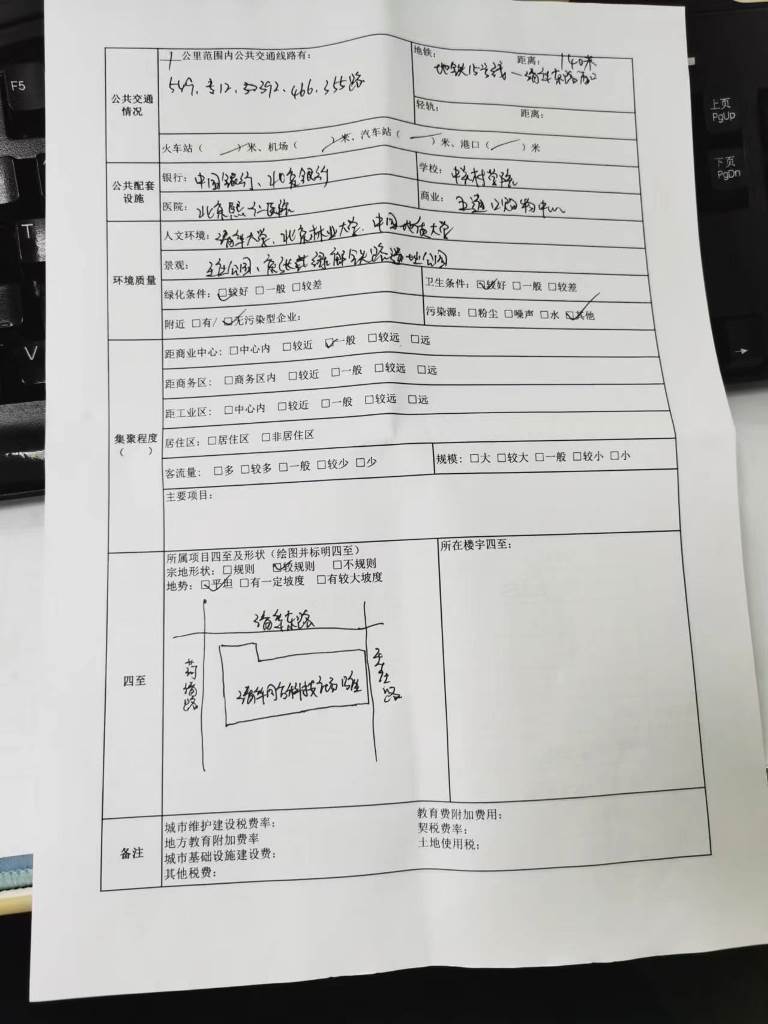 F5
V
上页
PgUp
下页
PgDn
1 公里范围内公共交通线路有：
549、专12、508、392、466、355路
公共交通情况
地铁： 距离：140米
地铁15号线—清华东路西口
轻轨： 距离：
火车站（ ）米、机场（ ）米、汽车站（ ）米、港口（ ）米
公共配套设施
银行：中国银行、北京银行
学校：
医院：北京熙仁医院
商业：五道口购物中心
环境质量
人文环境：清华大学、北京林业大学、中国地质大学
景观：
绿化条件：☑较好 □一般 □较差
卫生条件：☑较好 □一般 □较差
附近 □有/☑无污染型企业：
污染源：□粉尘 □噪声 □水 ☑其他
集聚程度（ ）
距商业中心：□中心内 □较近 ☑一般 □较远 □远
距商务区：□商务区内 □较近 □一般 □较远 □远
距工业区：□中心内 □较近 □一般 □较远 □远
居住区：□居住区 □非居住区
客流量：□多 □较多 □一般 □较少 □少
规模：□大 □较大 □一般 □较小 □小
主要项目：
四至
所属项目四至及形状（绘图并标明四至）
宗地形状：□规则 ☑较规则 □不规则
地势：☑平坦 □有一定坡度 □有较大坡度
清华东路
清华同方科技广场
王庄路
所在楼宇四至：
备注
城市维护建设税费率：
教育费附加费用：
地方教育附加费率
契税费率：
城市基础设施建设费：
土地使用税：
其他税费：